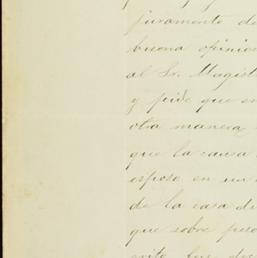 juramento de
buena opinion
al Sr. Magist
y pide que en
otra manera
que la causa
esposo en un
de la casa de
que sobre peso